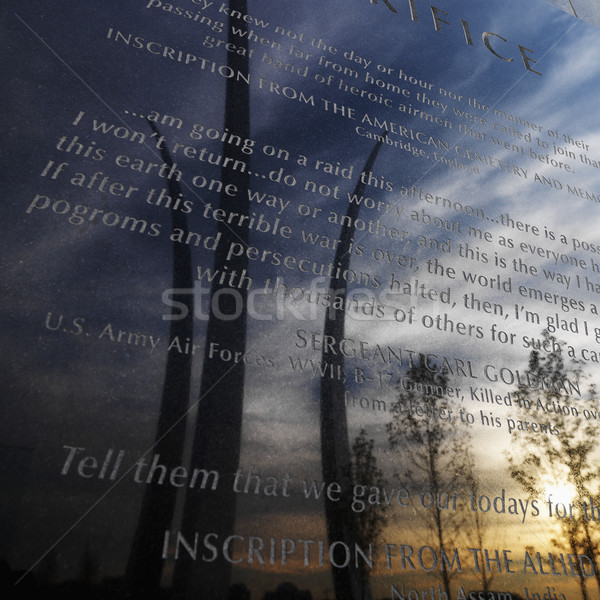 RIFICE
ey knew not the day or hour nor the manner of their
passing when far from home they were called to join that
great band of heroic airmen that went before.
INSCRIPTION FROM THE AMERICAN CEMETERY AND MEMO
Cambridge, England
...am going on a raid this afternoon...there is a poss
I won't return...do not worry about me as everyone h
this earth one way or another, and this is the way I ha
If after this terrible war is over, the world emerges a
pogroms and persecutions halted, then, I'm glad I g
with thousands of others for such a ca
SERGEANT CARL GOLDMAN
U.S. Army Air Forces, WWII, B-17 Gunner, Killed in Action ov
from a letter to his parents
Tell them that we gave our todays for th
INSCRIPTION FROM THE ALLIED
North Assam, India
stockfresh